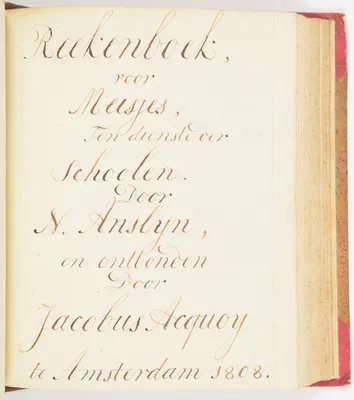 Reekenboek,
voor
Meisjes,
Ten dienste der
Schoolen.
Door
N. Anslyn,
en ontbonden
Door
Jacobus Acquoy
te Amsterdam 1808.